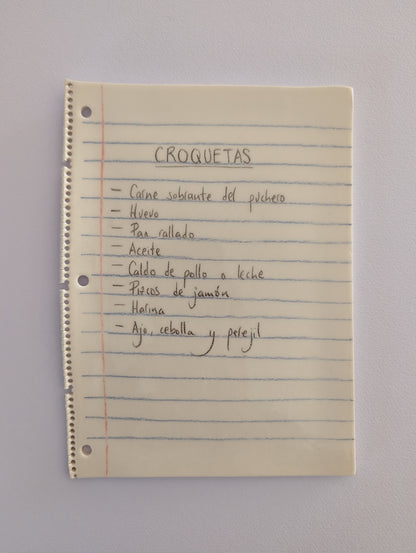 CROQUETAS
- Carne sobrante del puchero
- Huevo
- Pan rallado
- Aceite
- Caldo de pollo o leche
- Picos de jamón
- Harina
- Ajo, cebolla y perejil